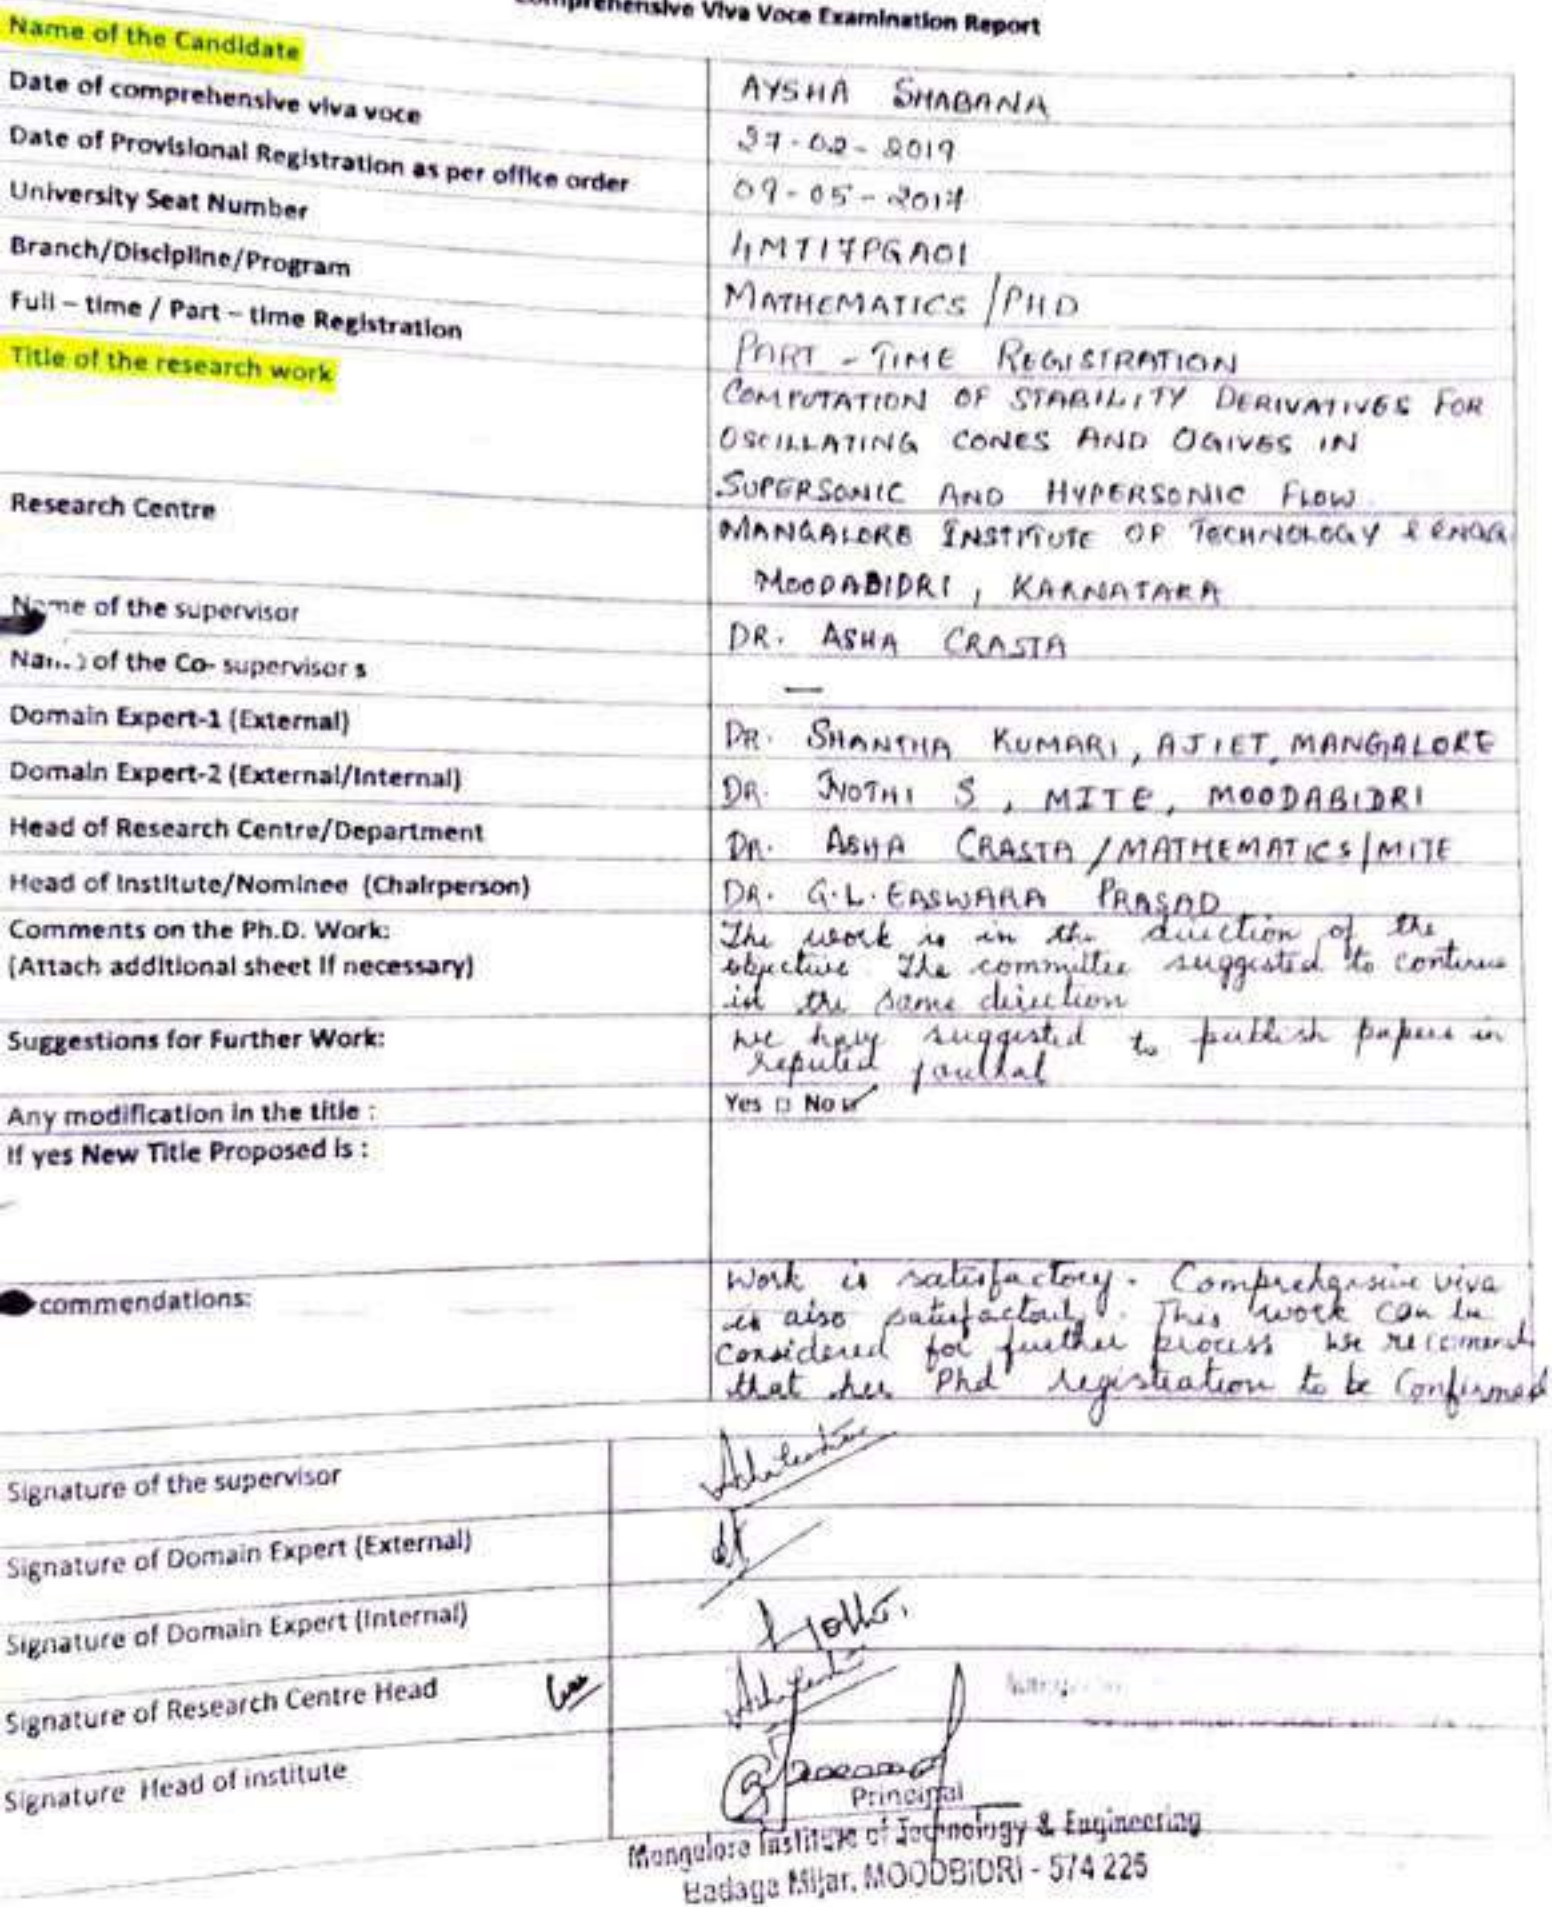 Comprehensive Viva Voce Examination Report
Name of the Candidate
AYSHA SHABANA
Date of comprehensive viva voce
27-02-2019
Date of Provisional Registration as per office order
09-05-2017
University Seat Number
4MT17PGA01
Branch/Discipline/Program
MATHEMATICS /PHD
Full – time / Part – time Registration
PART - TIME REGISTRATION
Title of the research work
COMPUTATION OF STABILITY DERIVATIVES FOR
OSCILLATING CONES AND OGIVES IN
SUPERSONIC AND HYPERSONIC FLOW
Research Centre
MANGALORE INSTITUTE OF TECHNOLOGY & ENGG
MOODABIDRI, KARNATAKA
Name of the supervisor
DR. ASHA CRASTA
of the Co- supervisor s
—
Domain Expert-1 (External)
DR. SHANTHA KUMARI, AJIET, MANGALORE
Domain Expert-2 (External/Internal)
DR. JYOTHI S, MITE, MOODABIDRI
Head of Research Centre/Department
DR. ASHA CRASTA /MATHEMATICS/MITE
Head of Institute/Nominee (Chairperson)
DR. G.L. EASWARA PRASAD
Comments on the Ph.D. Work:
(Attach additional sheet if necessary)
The work is in the direction of the
objective The committee suggested to continue
in the same direction
Suggestions for Further Work:
we have suggested to publish papers in
reputed journal
Any modification in the title :
Yes □ No ☑
If yes New Title Proposed is :
commendations:
Work is satisfactory. Comprehensive viva
is also satisfactory. This work can be
considered for further process we recomend
that her Phd registration to be Confirmed
Signature of the supervisor
Signature of Domain Expert (External)
Signature of Domain Expert (Internal)
Jyothi.
Signature of Research Centre Head
Signature Head of institute
Principal
Mangalore Institute of Technology & Engineering
Badaga Mijar, MOODBIDRI - 574 225